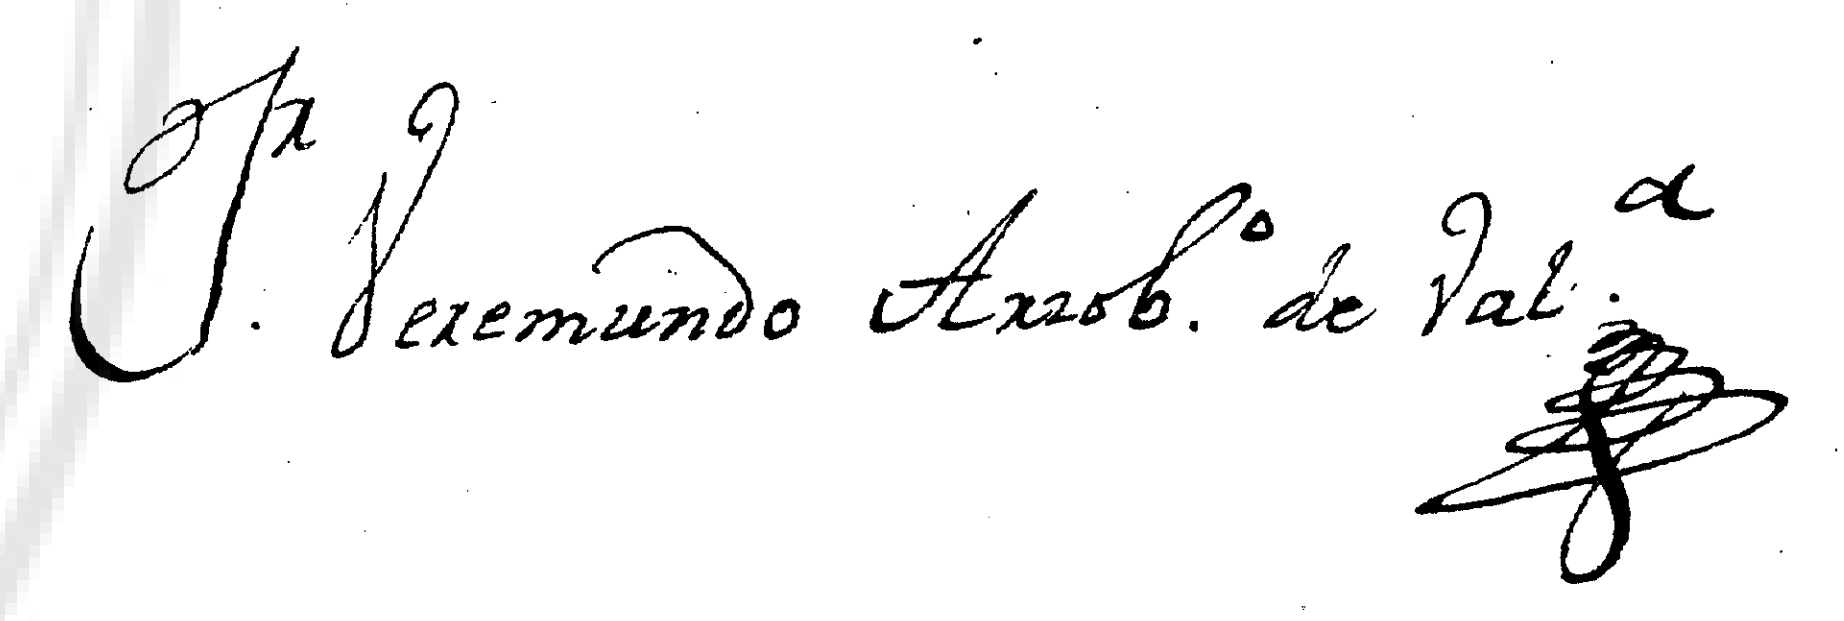 Fr. Veremundo Arzob.º de Val.ª